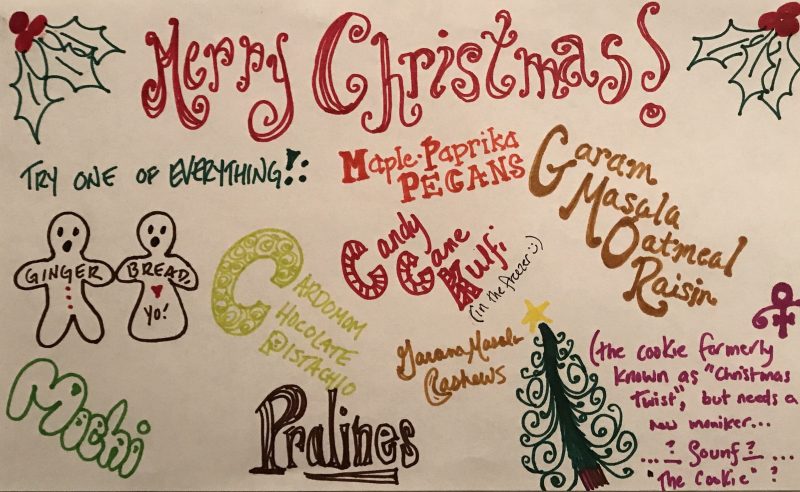 Merry Christmas!
TRY ONE OF EVERYTHING!!:
Maple-Paprika
PEGANS
Garam
Masala
Oatmeal
Raisin
GINGER
BREAD,
YO!
CARDOMOM
CHOCOLATE
PISTACHIO
Candy
Cane
Kulfi
(in the freezer :))
Garama Masala
Cashews
Mochi
Pralines
(the cookie formerly
known as "Christmas
Twist", but needs a
new moniker...
...? Sounf? ...
"The Cookie"?